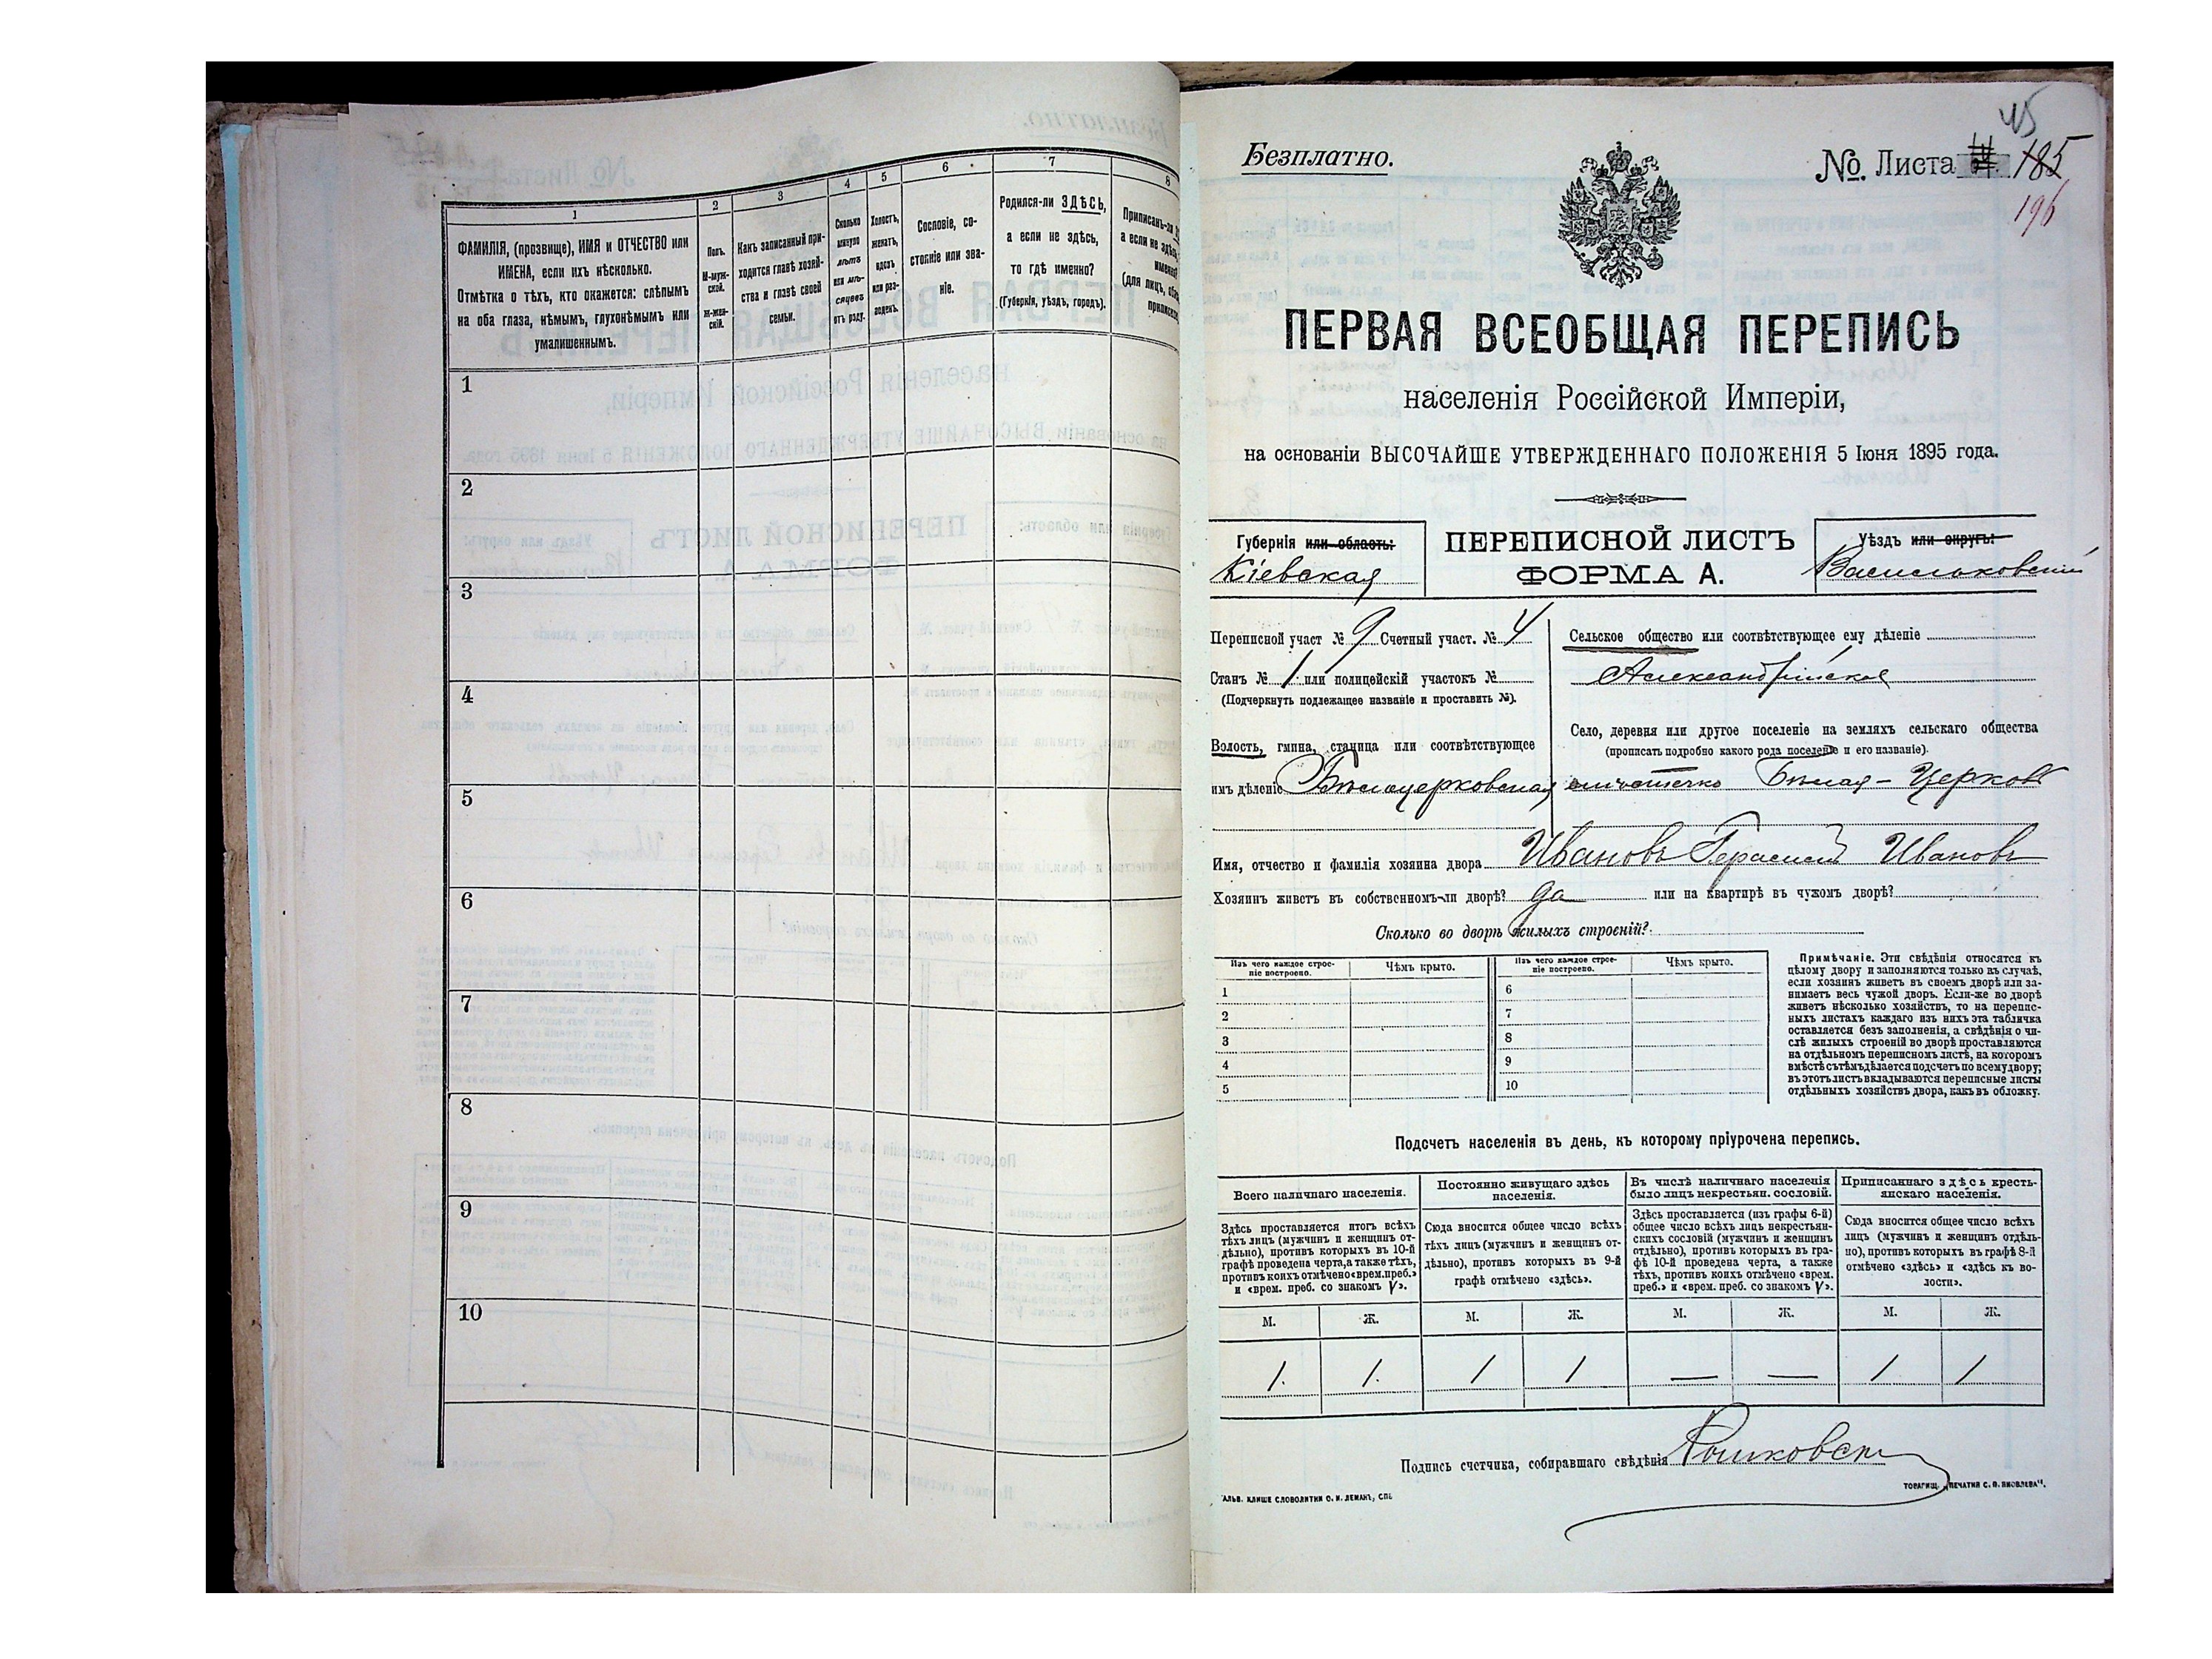 1
2
3
4
5
6
7
8
ФАМИЛІЯ, (прозвище), ИМЯ и ОТЧЕСТВО или
ИМЕНА, если ихъ нѣсколько.
Отмѣтка о тѣхъ, кто окажется: слѣпымъ
на оба глаза, нѣмымъ, глухонѣмымъ или
умалишеннымъ.
Полъ.
М-муж-
ской.
Ж-жен-
скій.
Какъ записанный при-
ходится главѣ хозяй-
ства и главѣ своей
семьи.
Сколько
минуло
лѣтъ
или мѣ-
сяцевъ
отъ роду.
Холостъ,
женатъ,
вдовъ
или раз-
веденъ.
Сословіе, со-
стояніе или зва-
ніе.
Родился-ли ЗДѢСЬ,
а если не здѣсь,
то гдѣ именно?
(Губернія, уѣздъ, городъ).
Приписанъ-ли
а если не здѣсь,
(для лицъ,
1
2
3
4
5
6
7
8
9
10
Безплатно.
№. Листа 185
45
196
ПЕРВАЯ ВСЕОБЩАЯ ПЕРЕПИСЬ
населенія Россійской Имперіи,
на основаніи ВЫСОЧАЙШЕ УТВЕРЖДЕННАГО ПОЛОЖЕНІЯ 5 Іюня 1895 года.
Губернія или область:
Кіевская
ПЕРЕПИСНОЙ ЛИСТЪ
ФОРМА А.
Уѣздъ или округъ:
Васильковскій
Переписной участ № 9 Счетный участ. № 4
Станъ № 1 или полицейскій участокъ №
(Подчеркнуть подлежащее названіе и проставить №).
Волость, гмина, станица или соотвѣтствующее
имъ дѣленіе Бѣлоцерковская
Сельское общество или соотвѣтствующее ему дѣленіе
Александрійское
Село, деревня или другое поселеніе на земляхъ сельскаго общества
(прописать подробно какого рода поселеніе и его названіе).
мѣстечко Бѣлая-Церковь
Имя, отчество и фамилія хозяина двора Ивановъ Герасимъ Ивановъ
Хозяинъ живетъ въ собственномъ-ли дворѣ? да или на квартирѣ въ чужомъ дворѣ?
Сколько во дворѣ жилыхъ строеній?
Изъ чего каждое строе-
ніе построено.
Чѣмъ крыто.
Изъ чего каждое строе-
ніе построено.
Чѣмъ крыто.
1
2
3
4
5
6
7
8
9
10
Примѣчаніе. Эти свѣдѣнія относятся къ
цѣлому двору и заполняются только въ случаѣ,
если хозяинъ живетъ въ своемъ дворѣ или за-
нимаетъ весь чужой дворъ. Если-же во дворѣ
живетъ нѣсколько хозяйствъ, то на перепис-
ныхъ листахъ каждаго изъ нихъ эта табличка
оставляется безъ заполненія, а свѣдѣнія о чи-
слѣ жилыхъ строеній во дворѣ проставляются
на отдѣльномъ переписномъ листѣ, на которомъ
вмѣстѣ съ тѣмъ дѣлается подсчетъ по всему двору;
въ этотъ листъ вкладываются переписные листы
отдѣльныхъ хозяйствъ двора, какъ въ обложку.
Подсчетъ населенія въ день, къ которому пріурочена перепись.
Всего наличнаго населенія.
Здѣсь проставляется итогъ всѣхъ
тѣхъ лицъ (мужчинъ и женщинъ от-
дѣльно), противъ которыхъ въ 10-й
графѣ проведена черта, а также тѣхъ,
противъ коихъ отмѣчено «врем. преб.»
и «врем. преб. со знакомъ V».
Постоянно живущаго здѣсь
населенія.
Сюда вносится общее число всѣхъ
тѣхъ лицъ (мужчинъ и женщинъ от-
дѣльно), противъ которыхъ въ 9-й
графѣ отмѣчено «здѣсь».
Въ числѣ наличнаго населенія
было лицъ некрестьян. сословій.
Здѣсь проставляется (изъ графы 6-й)
общее число всѣхъ лицъ некрестьян-
скихъ сословій (мужчинъ и женщинъ
отдѣльно), противъ которыхъ въ гра-
фѣ 10-й проведена черта, а также
тѣхъ, противъ коихъ отмѣчено «врем.
преб.» и «врем. преб. со знакомъ V».
Приписаннаго здѣсь кресть-
янскаго населенія.
Сюда вносится общее число всѣхъ
лицъ (мужчинъ и женщинъ отдѣль-
но), противъ которыхъ въ графѣ 8-й
отмѣчено «здѣсь» и «здѣсь къ во-
лости».
М. Ж. М. Ж. М. Ж. М. Ж.
1. 1. 1 1 — — 1 1
Подпись счетчика, собиравшаго свѣдѣнія
АЛЬВ. КЛИШЕ СЛОВОЛИТНИ О. И. ЛЕМАНЪ, СПБ.
ТОВАРИЩ. „ПЕЧАТНЯ С. П. ЯКОВЛЕВА“.